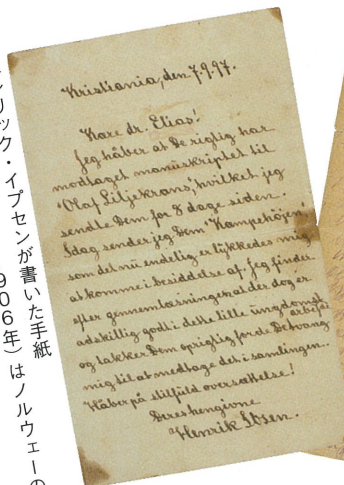 Kristiania, den 7.9.97.
Kære dr. Elias!
Jeg håber at De rigtig har
modtaget manuskriptet til
"Olaf Liljekrans," hvilket jeg
sendte Dem for 8 dage siden.
Idag sender jeg Dem "Kæmpehøjen",
som det nu endelig er lykkedes mig
at komme i besiddelse af. Jeg finder
efter gennemlæsningen at der dog er
adskilligt godt i dette lille ungdoms-
arbejde
og takker Dem oprigtig fordi De tvang
mig til at medtage det i samlingen.
Håber på stilfuld oversættelse!
Deres hengivne
Henrik Ibsen.
リック・イプセンが書いた手紙
906年）はノルウェーの